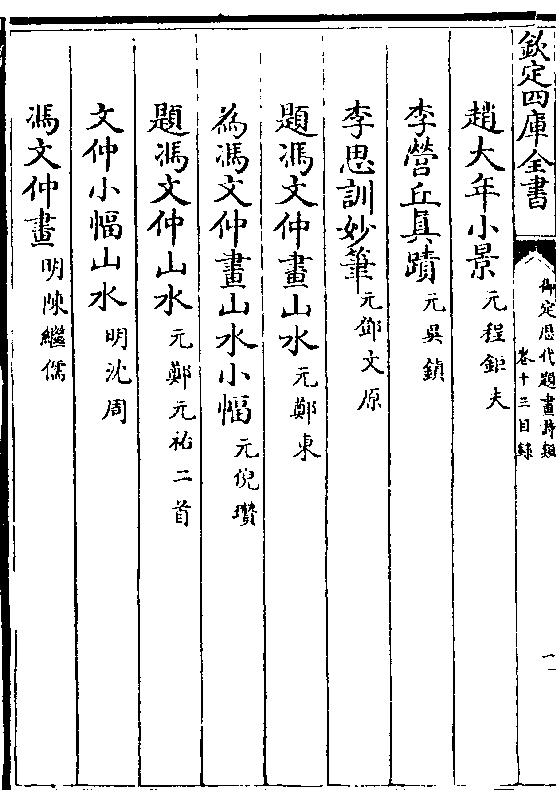 欽定四庫全書
御定歷代題畫詩類
卷十三目錄
一
趙大年小景 元程鉅夫
李營丘真蹟 元吳鎮
李思訓妙筆 元鄧文原
題馮文仲畫山水 元鄭東
為馮文仲畫山水小幅 元倪瓚
題馮文仲山水 元鄭元祐二首
文仲小幅山水 明沈周
馮文仲畫 明陳繼儒